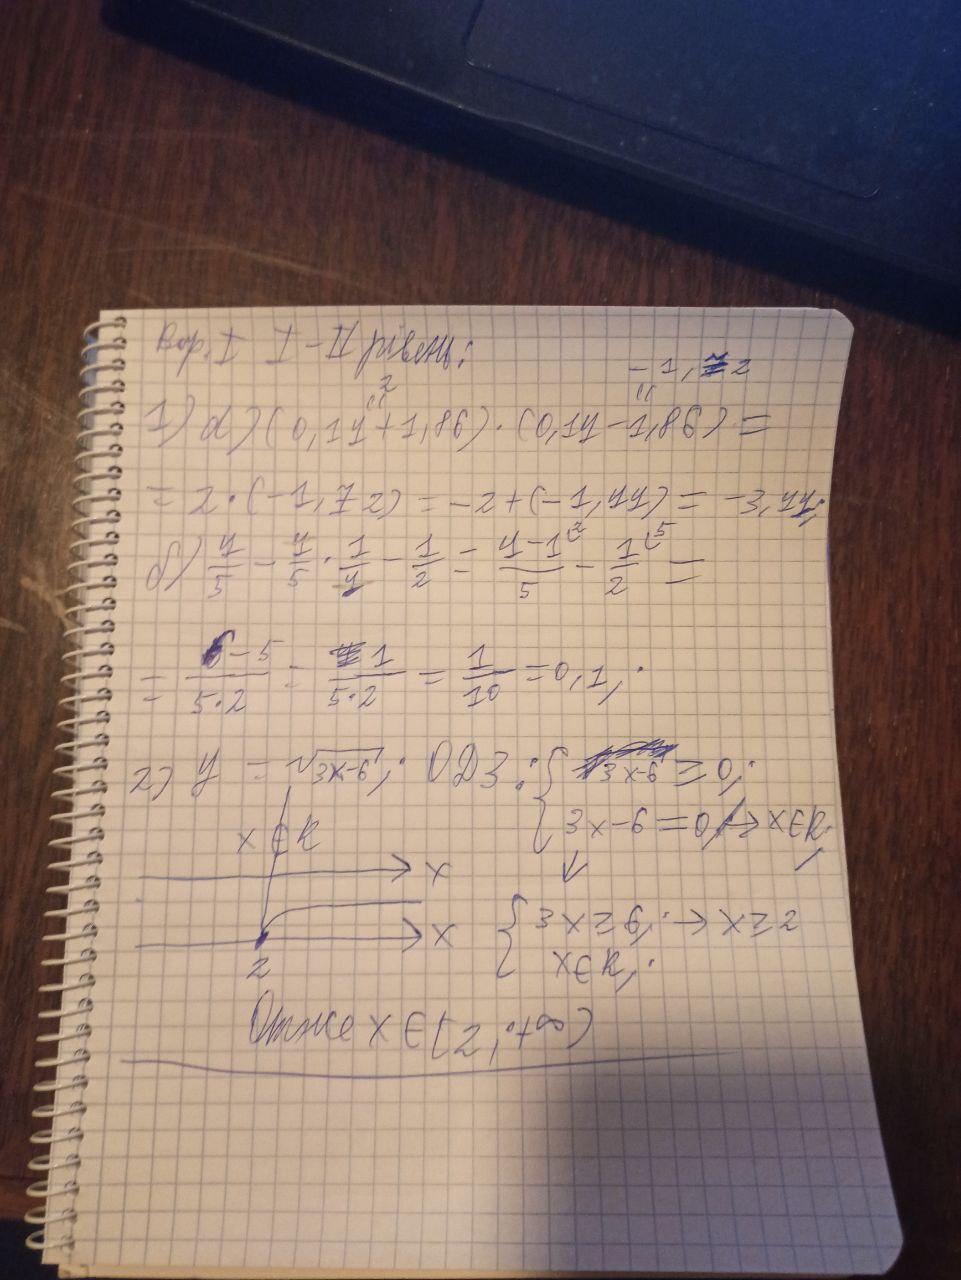 Вар. I I-II рівень:
2
-1,72
1) а) (0,14+1,86)·(0,14-1,86) =
= 2·(-1,72) = -2+(-1,44) = -3,44;
б) 4/5 - 4/5 · 1/4 - 1/2 = 4-1/5 - 1/2 =
= 6-5/5·2 = 1/5·2 = 1/10 = 0,1;
2) y = √3x-6; ОДЗ: { 3x-6 ≥ 0;
3x-6 = 0 → x∈R;
x∈R
x
{ 3x≥6; → x≥2
x
x∈R;
2
Отже x∈[2;+∞)